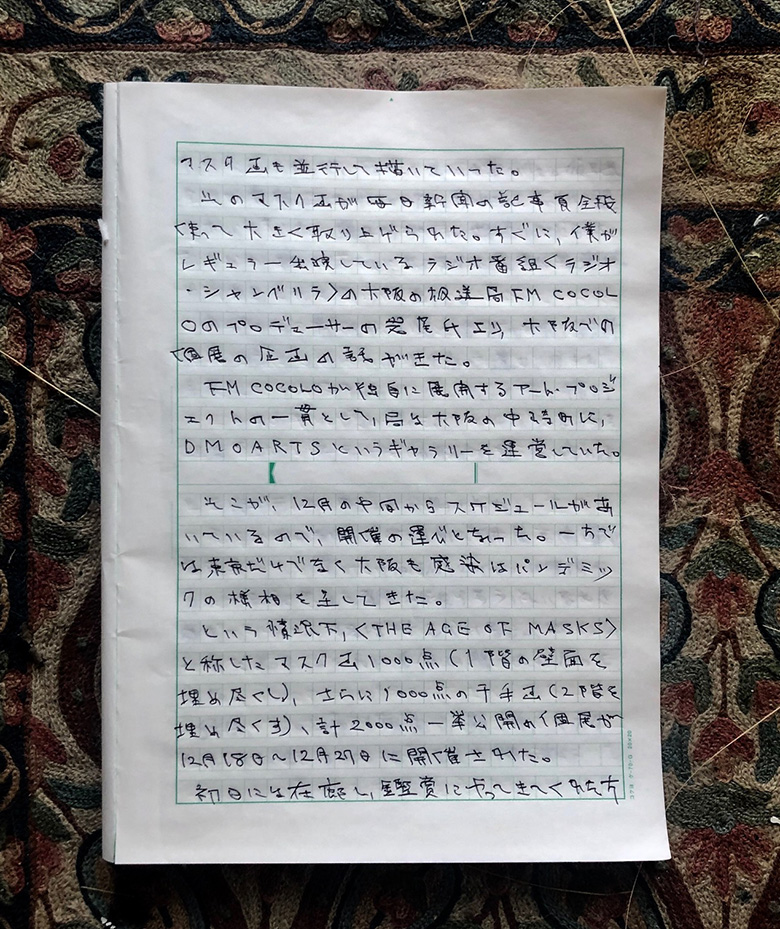 マスク画も並行して描いていった。
そのマスク画が毎日新聞の記事頁全段
使って大きく取り上げられた。すぐに、僕が
レギュラー出演しているラジオ番組〈ラジオ
・シャングリラ〉の大阪の放送局FM COCOL
Oのプロデューサーの 氏より、大阪での
個展の企画の話がきた。
FM COCOLOが独自に展開するアート・プロジ
ェクトの一貫として、局は大阪の中 町に、
DMOARTSというギャラリーを運営していた。
そこが、12月の中間からスケジュールがあ
いているので、開催の運びとなった。一方で
は東京だけでなく大阪も感染はパンデミッ
クの様相を呈してきた。
という情況下、〈THE AGE OF MASKS〉
と称したマスク画1000点(1階の壁面を
埋め尽くし)、さらに1000点の千手画(2階を
埋め尽くす)、計2000点一挙公開の個展が
12月18日〜12月27日に開催された。
初日には在廊し、鑑賞にやってきてくれた方